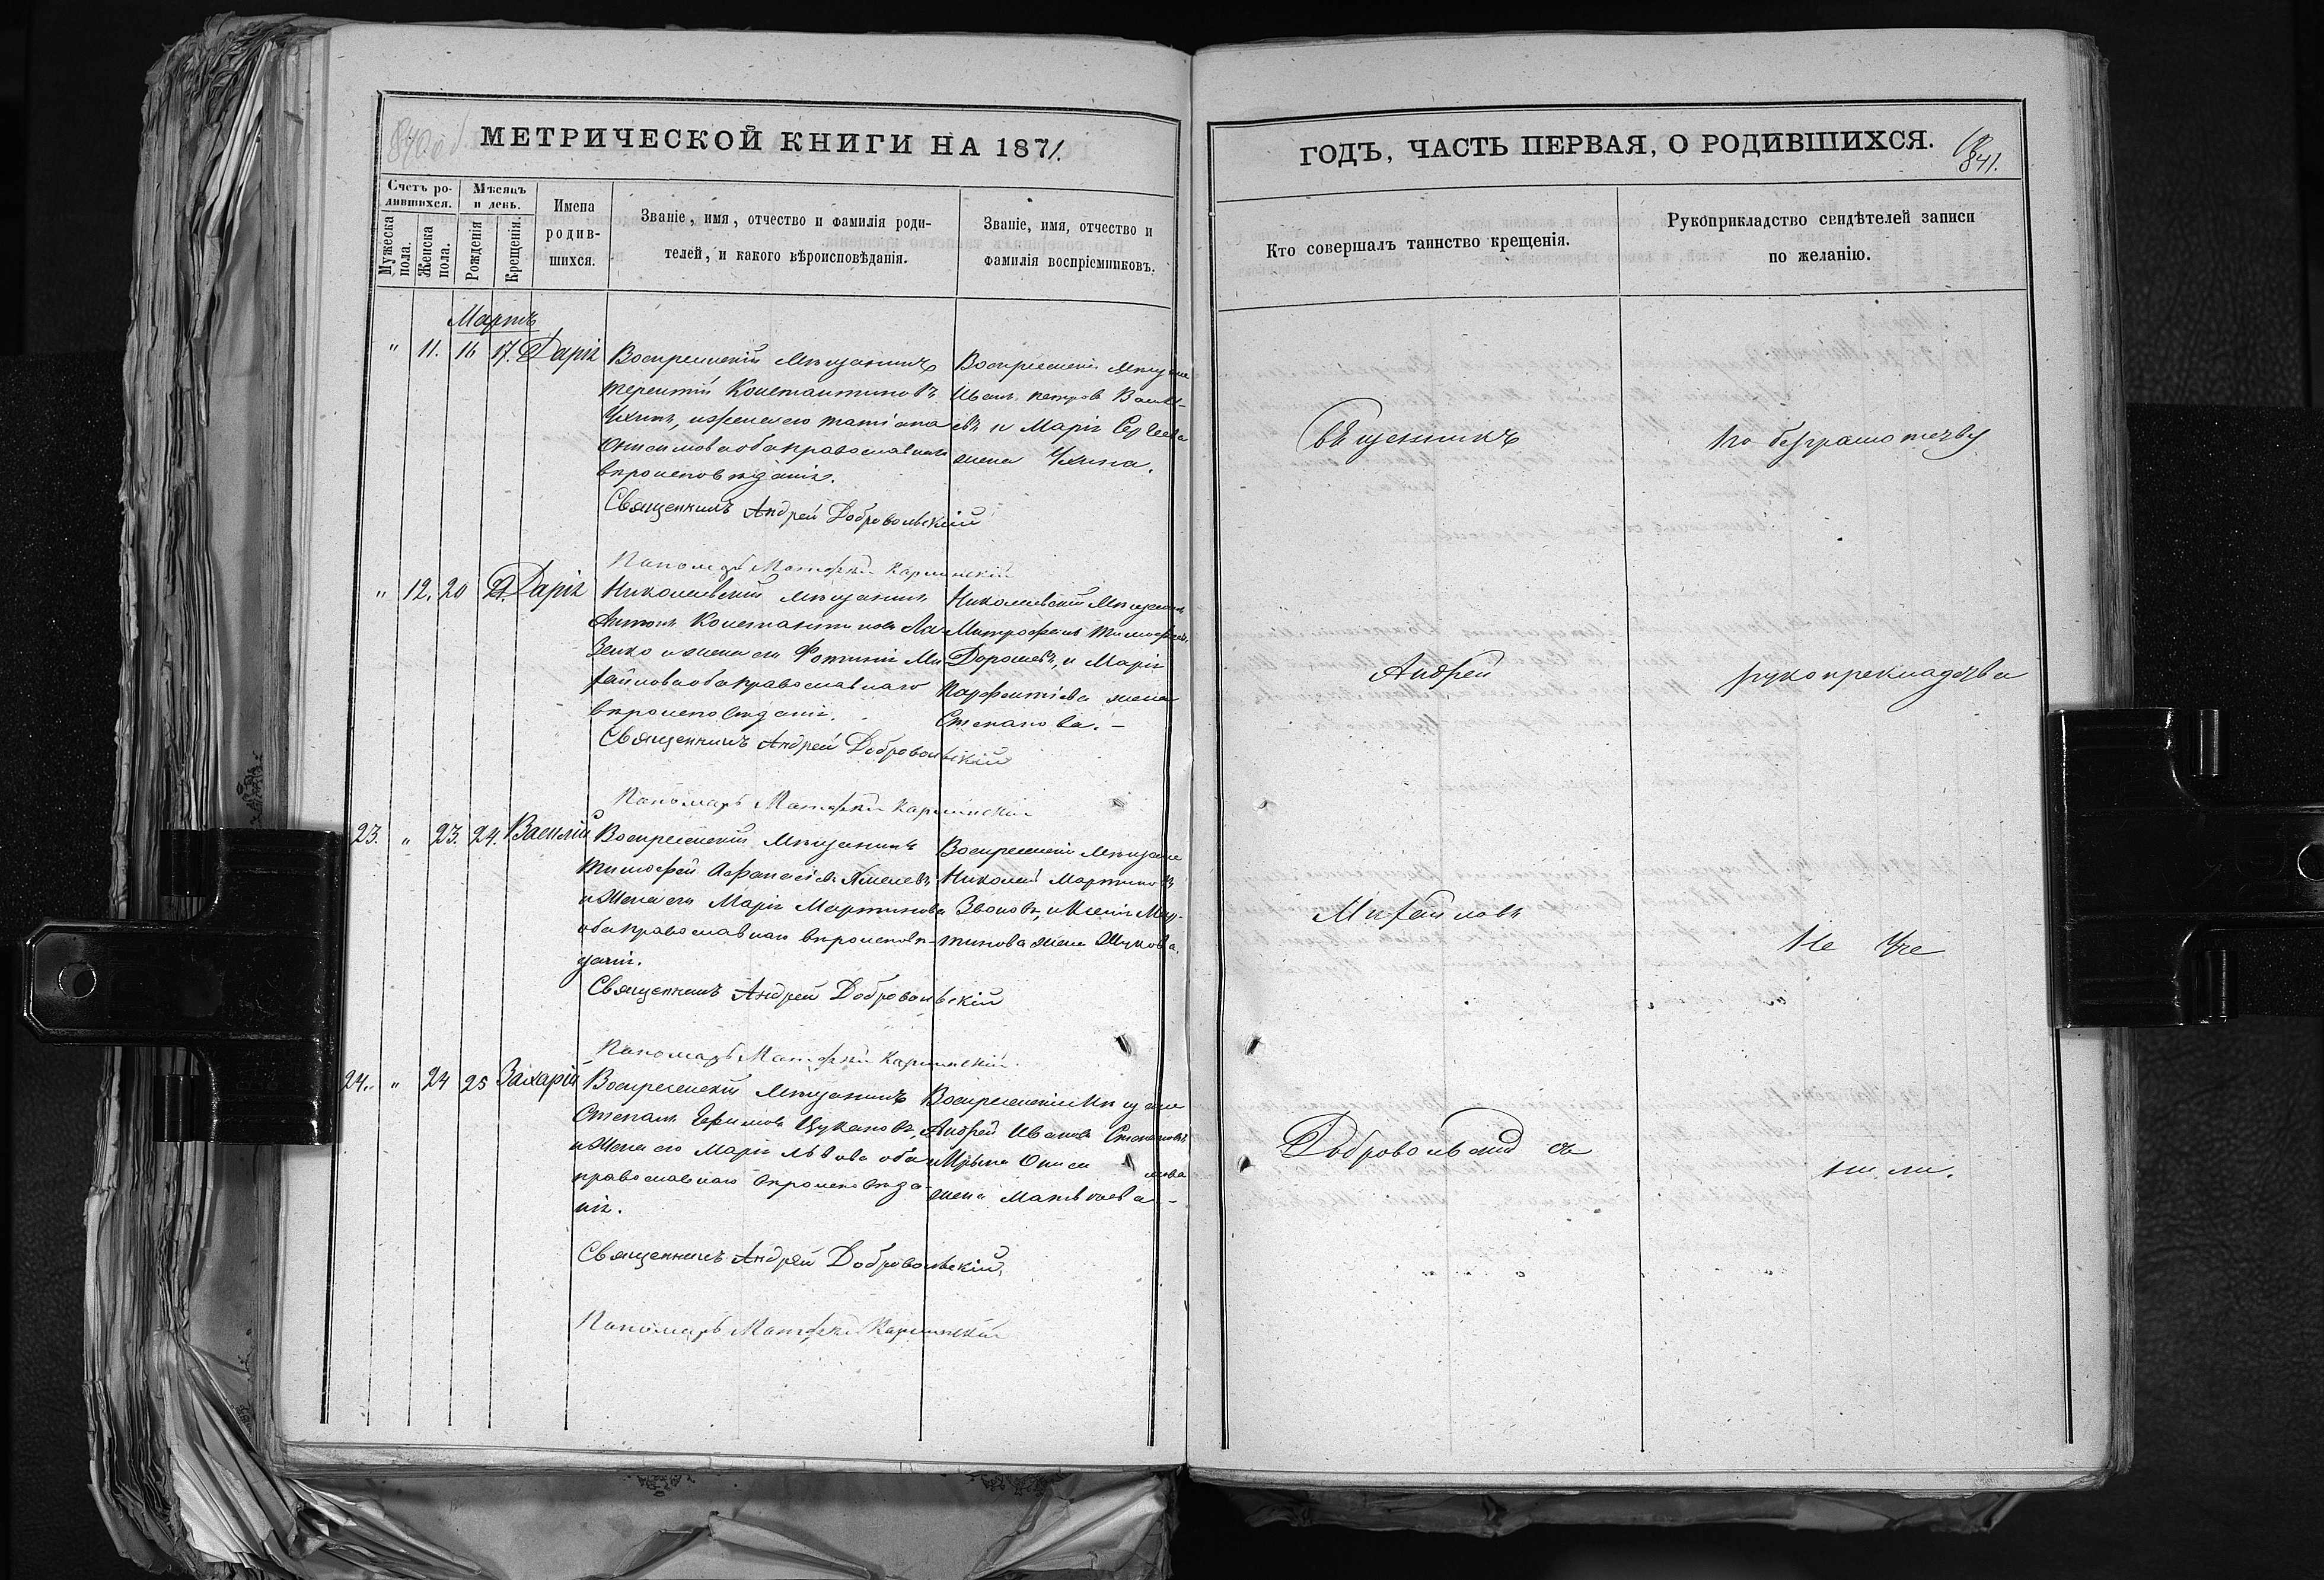 840 об.
МЕТРИЧЕСКОЙ КНИГИ НА 1871.
Счетъ ро-
дившихся.
Мѣсяцъ
и день.
Мужеска
пола.
Женска
пола.
Рожденія
Крещенія.
Имена
родив-
шихся.
Званіе, имя, отчество и фамилія роди-
телей, и какого вѣроисповѣданія.
Званіе, имя, отчество и
фамилія воспріемниковъ.
Мартъ
" 11. 16 17. Дарія
Воскресенскій Мѣщанинъ
Терентій Константиновъ
Ухинъ, и жена его Татіана
Онисимова оба православнаго
вѣроисповѣданія.
Священникъ Андрей Добровольскій
Пономарь Матфей Карминскій
Воскресенскій Мѣщане
Иванъ Петровъ
и Марія Сергеева
жена Ухина.
" 12. 20 21. Дарія
Николаевскій Мѣщанинъ
Антонъ Константиновъ Ла-
зенко и жена его Фотинія Ми
хайлова оба православнаго
вѣроисповѣданія.
Священникъ Андрей Добровольскій
Пономарь Матфей Карминскій
Николаевскій Мѣщанинъ
Митрофанъ Тимофеевъ
и Марія
Парфентіева жена
Степанова. -
23. " 23. 24. Василій
Воскресенскій Мѣщанинъ
Тимофей Афанасіевъ
и Жена его Марія Мартинова
оба православнаго вѣроисповѣ-
данія.
Священникъ Андрей Добровольскій
Пономарь Матфей Карминскій
Воскресенскій Мѣщане
Николай Мартиновъ
Звоновъ, и Ксенія Мар-
тинова жена Жукова.
24. " 24 25 Захарій
Воскресенскій Мѣщанинъ
Степанъ Ефимовъ Цукановъ,
и Жена его Марія Львова оба
православнаго вѣроисповѣда-
нія.
Священникъ Андрей Добровольскій,
Пономарь Матфей Карминскій
Воскресенскіе Мѣщане
Андрей Ивановъ Степановъ
и Ирина
жена
ГОДЪ, ЧАСТЬ ПЕРВАЯ, О РОДИВШИХСЯ.
841.
Кто совершалъ таинство крещенія.
Рукоприкладство свидѣтелей записи
по желанію.
Священникъ
Андрей
Михайловъ
Добровольскій
По безграмотству
рукоприкладства
Не Учи
ни ли.